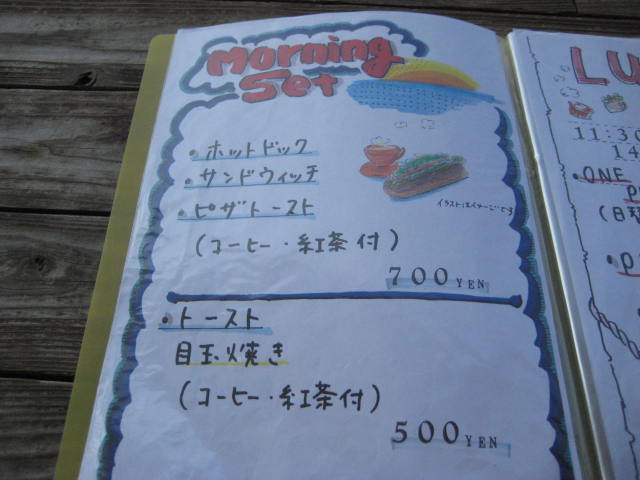 Morning
Set
・ホットドック
・サンドウィッチ
・ピザトースト
イラストはイメージです
(コーヒー・紅茶付)
700YEN
・トースト
目玉焼き
(コーヒー・紅茶付)
500YEN
LU
11:30
14
・ONE
P
(日
・P